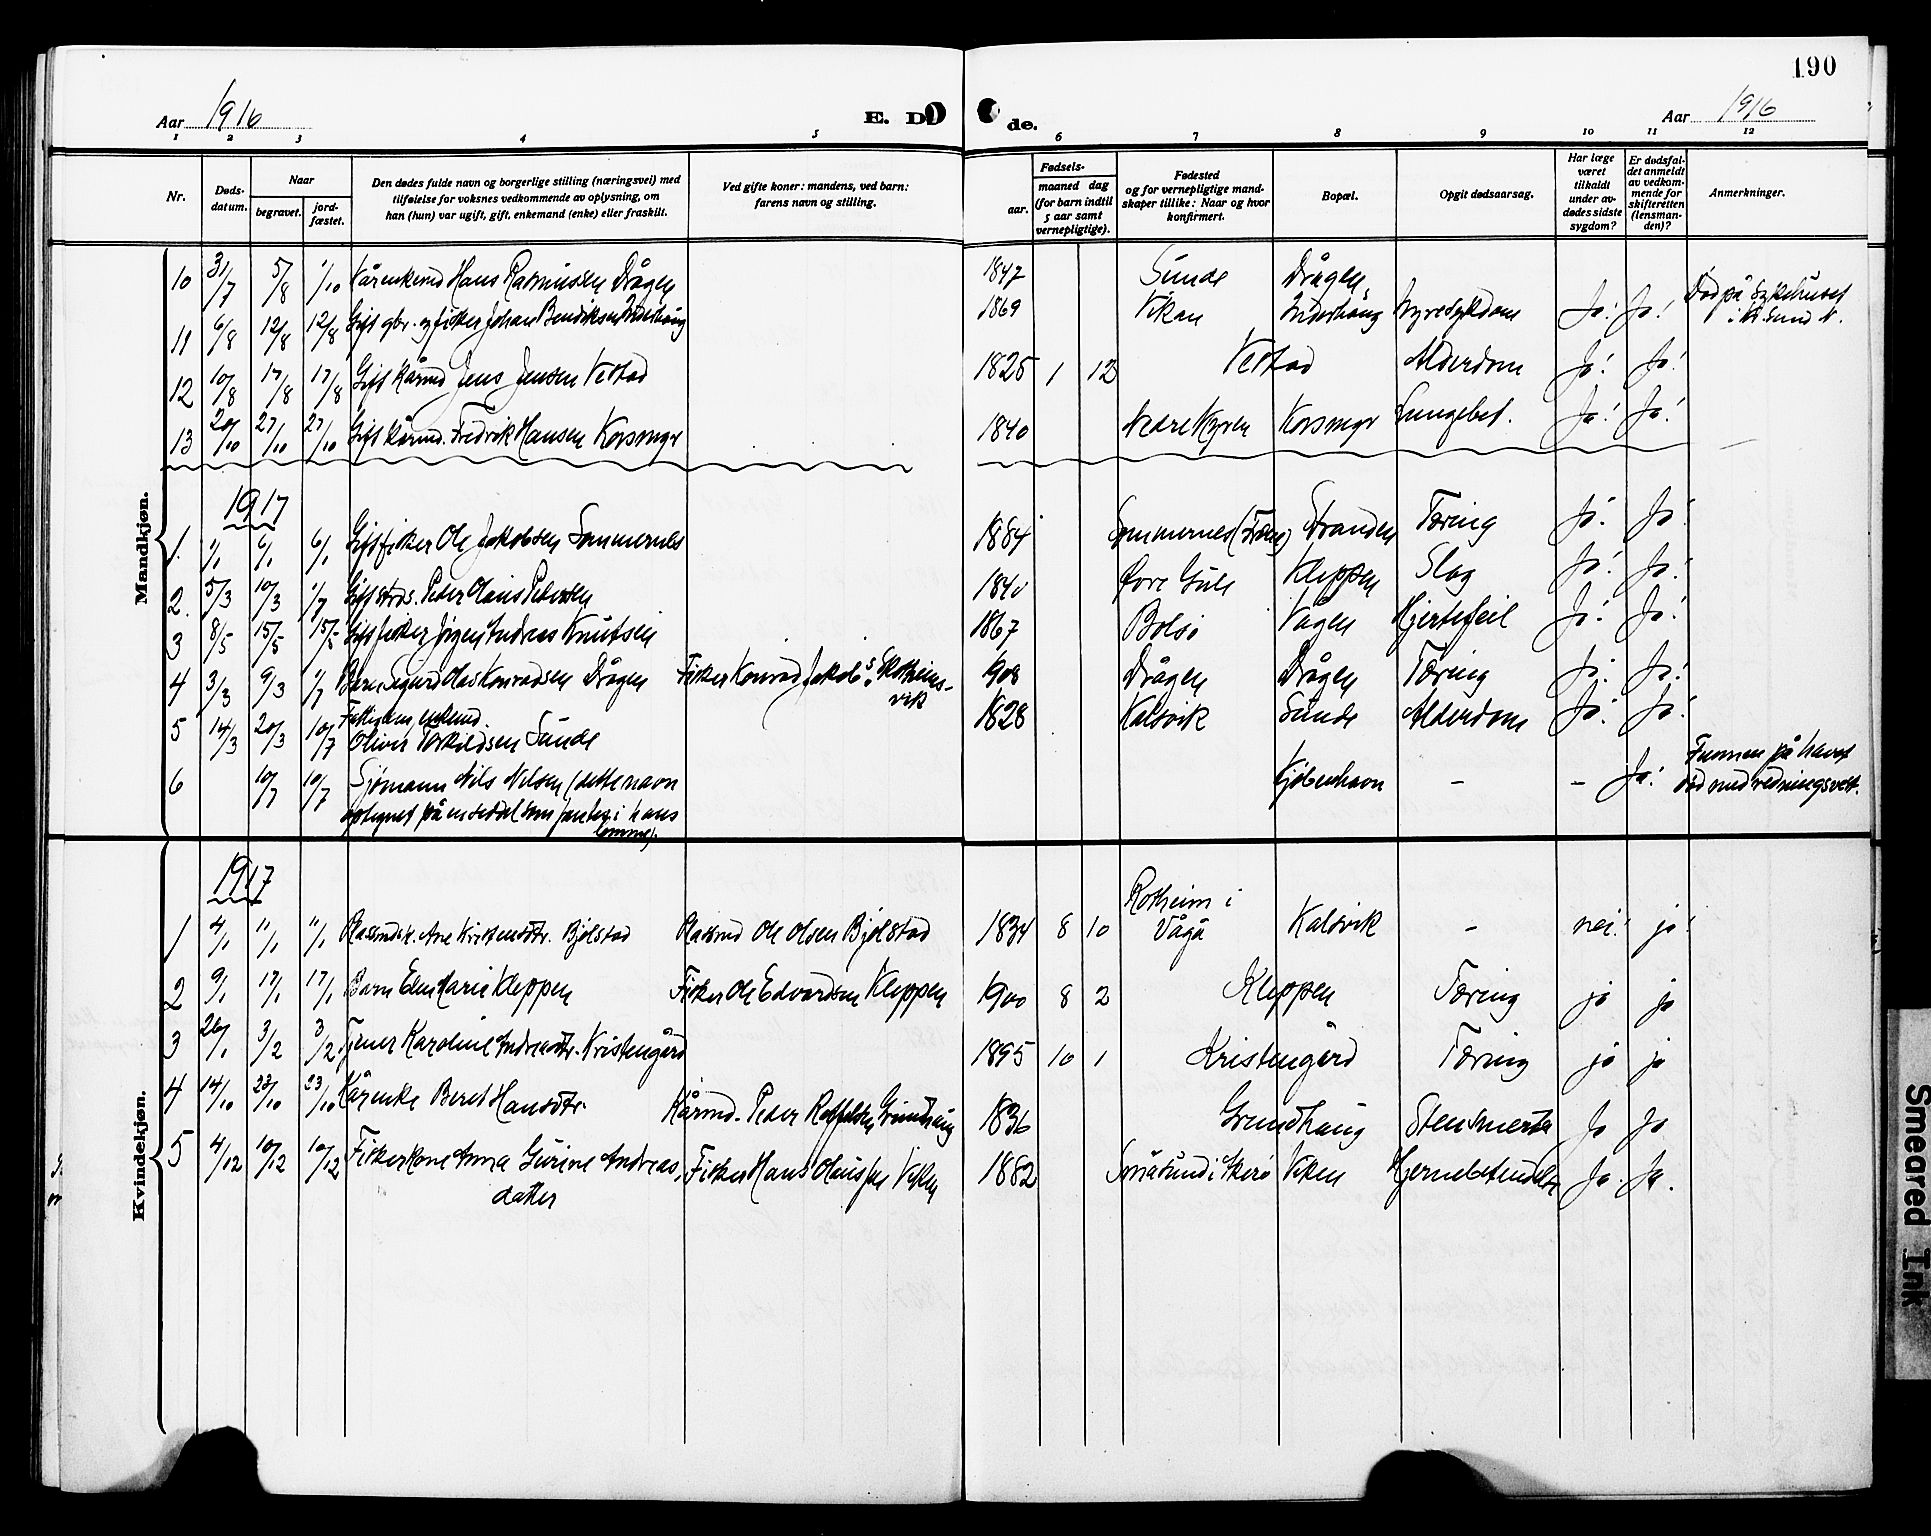 190
Aar 1916
E. Døde.
Aar 1916
1 2 3 4 5 6 7 8 9 10 11 12
Nr.
Døds-
datum.
Naar
begravet.
jord-
fæstet.
Den dødes fulde navn og borgerlige stilling (næringsvei) med
tilføielse for voksnes vedkommende av oplysning, om
han (hun) var ugift, gift, enkemand (enke) eller fraskilt.
Ved gifte koner: mandens, ved barn:
farens navn og stilling.
Fødsels-
aar.
maaned dag
(for barn indtil
5 aar samt
vernepligtige).
Fødested
og for vernepligtige mand-
skaper tillike: Naar og hvor
konfirmert.
Bopæl.
Opgit dødsaarsag.
Har læge
været
tilkaldt
under av-
dødes sidste
sygdom?
Er dødsfal-
det anmeldt
av vedkom-
mende for
skifteretten
(lensman-
den)?
Anmerkninger.
Mandkjøn.
10 31/7 5/8 1/10 Kårenkemd Hans Rasmussen Drågen 1847 Sunde Drågen
11 6/8 12/8 12/8 Gift gbr. og fisker Johan Bendiksen Inderhaug 1869 Vikan Inderhaug Nyresykdom Ja! Ja! Død på sykehuset
i Kr.sund N.
12 10/8 17/8 17/8 Gift kårmd Jens Jensen Vestad 1825 1 12 Vestad Alderdom Ja! Ja!
13 20/10 27/10 27/10 Gift kårmd. Fredrik Hansen Korsmyr 1840 Nedre Myren Korsmyr Lungebet. Ja! Ja!
1917
1. 1/1 6/1 6/1 Gift fisker Ole Jakobsen Sommernes 1884 Sommernes Stranden Tæring Ja! Ja!
2. 5/3 10/3 1/7 Gift Peder Olaus Pedersen 1840 Øvre Gule Kleppen Slag Ja! Ja!
3 8/5 15/5 15/5 Gift fisker Jørgen Andreas Knutsen 1867 Bolsø Vågen Hjertefeil Ja! Ja!
4 3/3 9/3 1/7 Barn Sigurd Olas Konradsen Drågen Fisker Konrad Jakobs.
vik 1908 Drågen Drågen Tæring Ja. Ja!
5 14/3 20/3 10/7 Fattiglem, enkemd.
Oliver Torkildsen Sunde 1828 Kalsvik Sunde Alderdom Ja! Ja!
6 10/7 10/7 Sjømann Nils Nilsen (dette navn
optegnet på en seddel som fandtes i hans
lomme). Kjøbenhavn - - Ja! Funnen på havet
død med redningsvest.
Kvindekjøn.
1917
1 4/1 11/1 11/1 Ane Bjølstad Ole Olsen Bjølstad 1834 8 10 Rotheim i
Vågå Kalsvik - nei! ja!
2 9/1 17/1 17/1 Barn Elen Marie Kleppen Fisker Ole Edvardsen Kleppen 1900 8 2 Kleppen Tæring ja ja
3 26/1 3/2 3/2 Tjener Karoline Andreasdtr. Kristengård 1895 10 1 Kristengård Tæring ja ja
4 14/10 23/10 23/10 Kårenke Beret Hansdtr. Kårmd. Peder Grundhaug 1836 Grundhaug Stensmerter Ja Ja
5 4/12 10/12 10/12 Fiskerkone Anna Gurine Andreas-
datter Fisker Hans Olaus Viken 1882 Småsund i Akerø Viken Hjernebetendelse Ja. Ja.
Smeared Ink